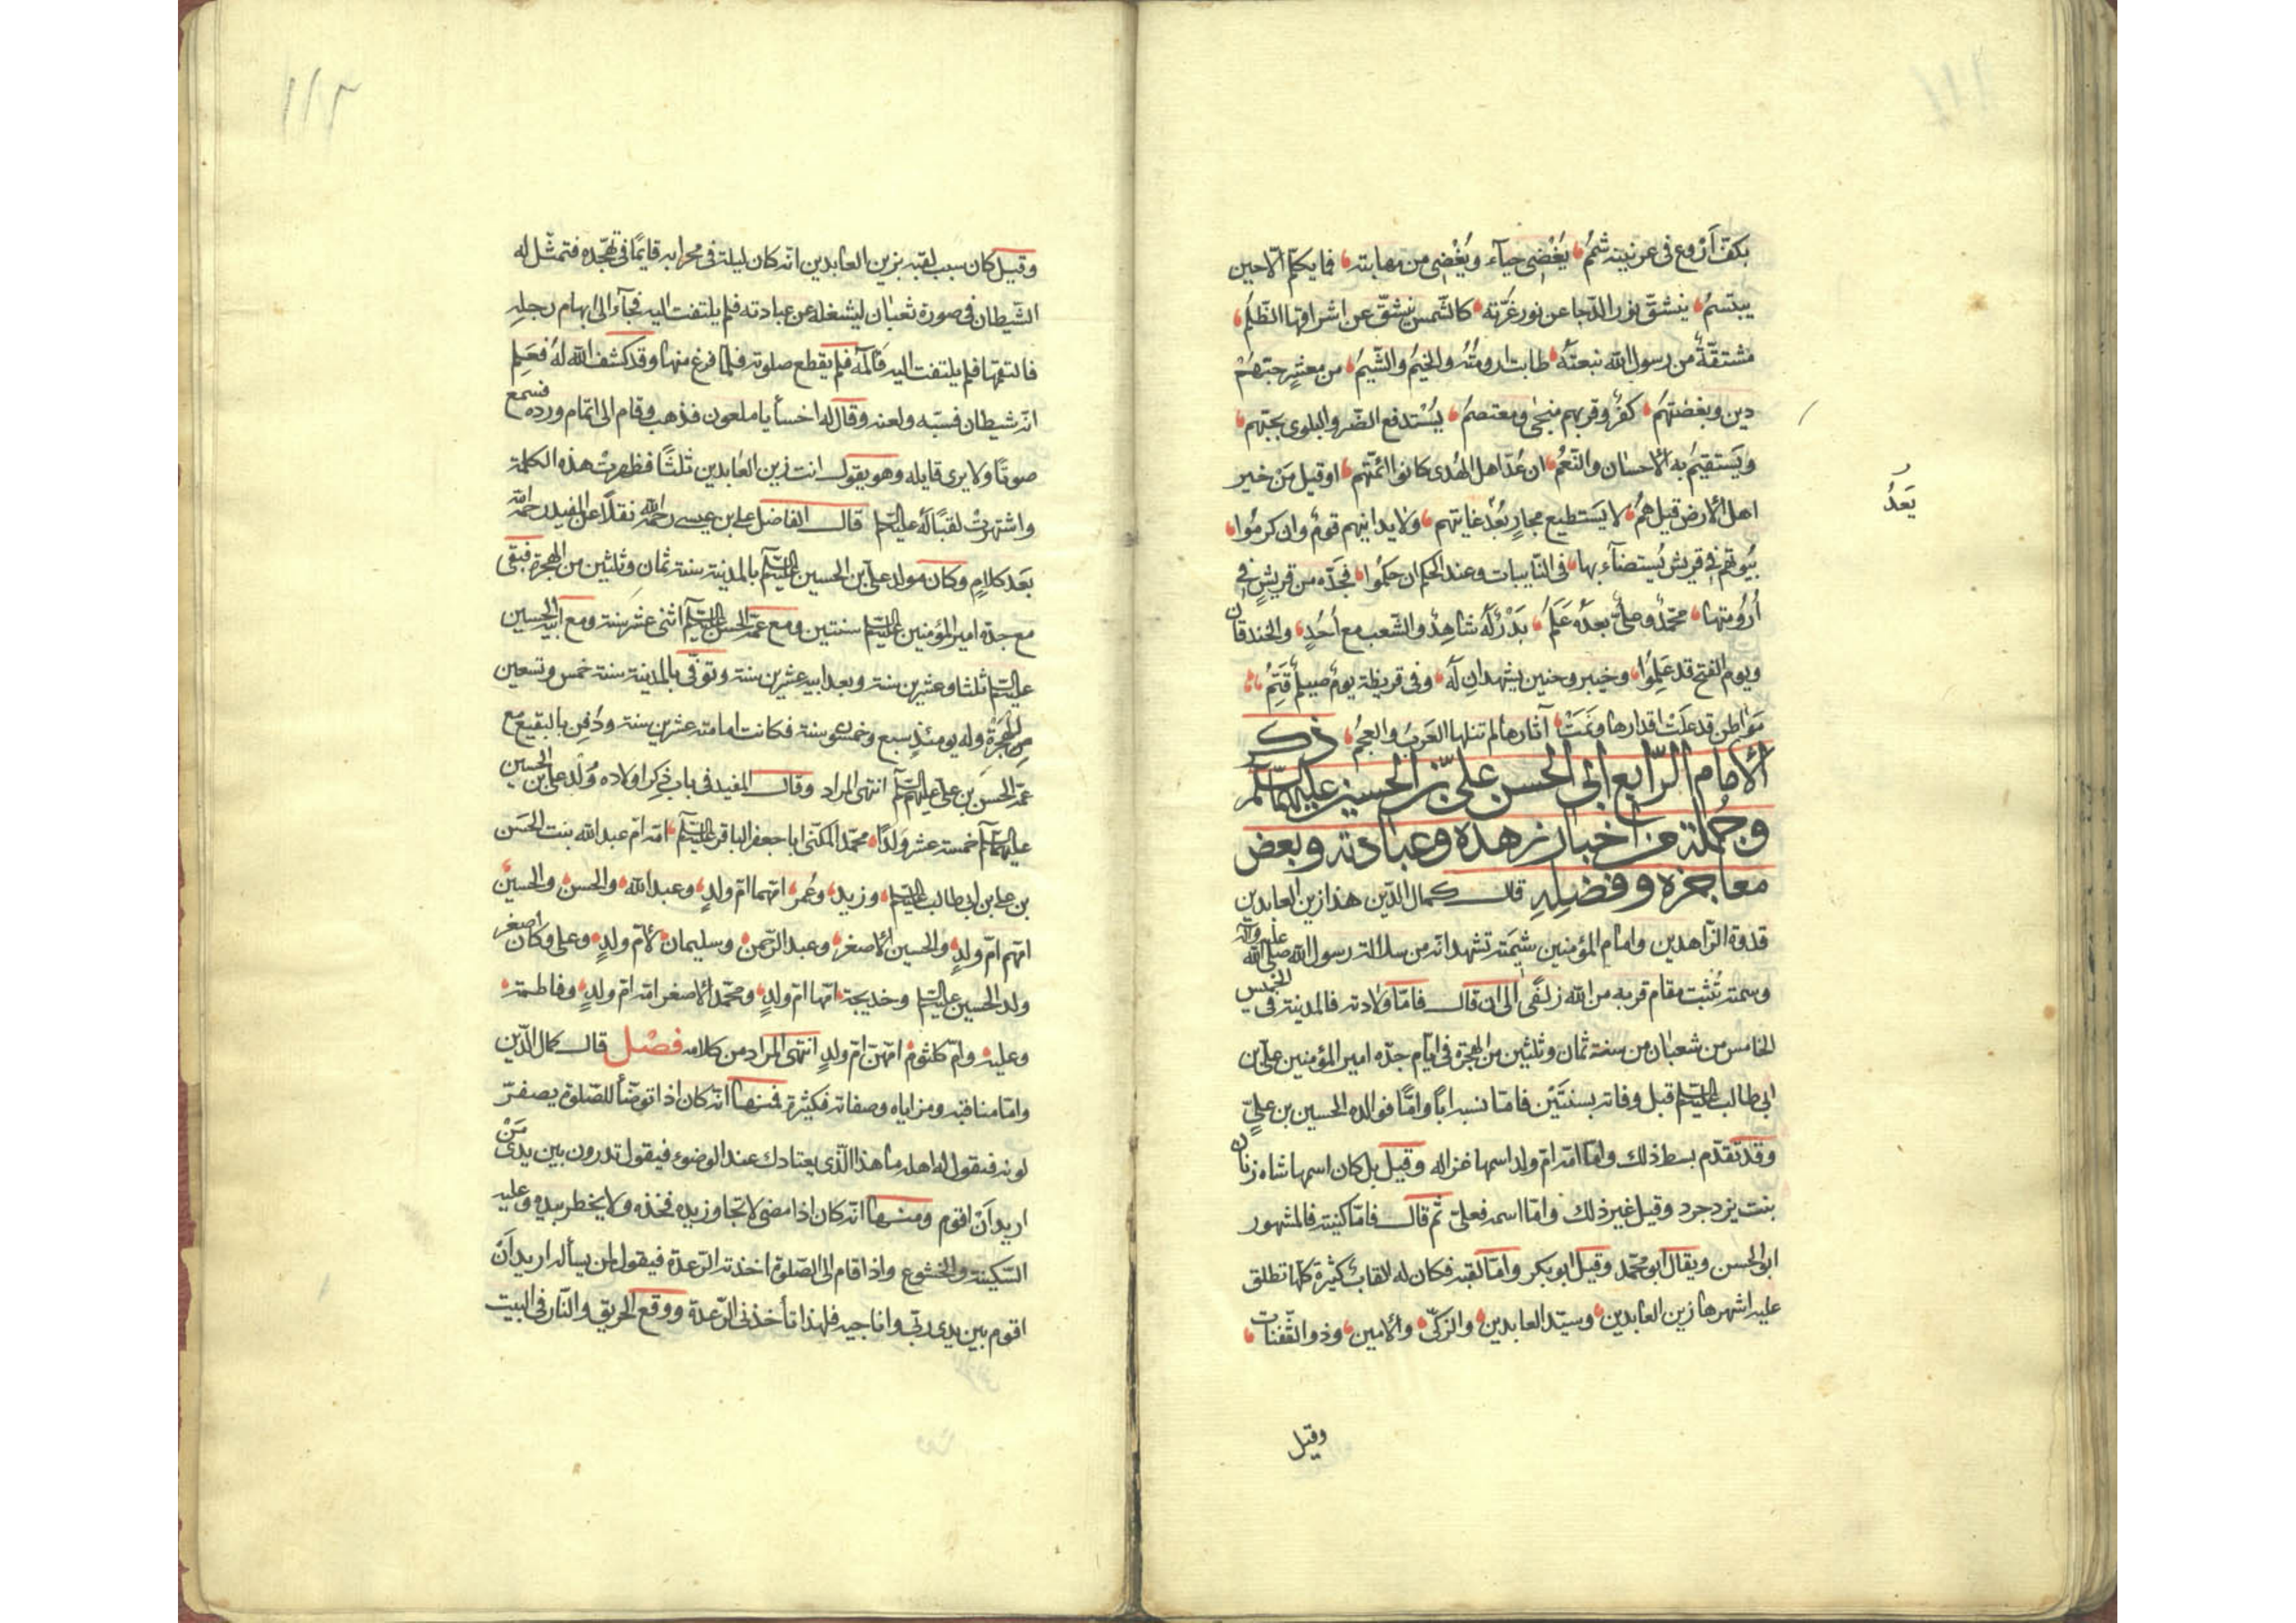 ١١١
بكفّ أَرْوع فى عرنينه شممُ يُغْضِى حيآء ويُغْضٰى من مهابته فما يكلّم الّا حين
يبتسمُ ينشقّ نور الدّجا عن نور غرّته كالشّمس ينشقّ عن اشراقها الظّلمُ
مشتقّةٌ من رسول الله نبعتُهُ طابت ارومتُهُ والخيمُ والشّيمُ من معشرٍ حبّهُمْ
دين وبغضهُم كفرٌ وقربهم منجىً ومعتصمُ يُسْتدفع الضّر والبلوى بحبّهم
ويَستقيمُ به الاحسان والنّعمُ ان عُدّ اهل الهُدى كانوا ائمّتهم او قيل مَنْ خير
اهل الأرض قيل همُ لا يَستطيع مجارٍ بُعْد غايتهم ولا يدانيهم قومٌ وان كرمُوا
بُيُوتهم فى قريش يُستضآء بها فى النّايبات وعند الحكم ان حكمُوا فجدّه من قريشٍ فى
أُرُومتها محمّدٌ وعلىٌّ بعدَهُ عَلَمُ بَدْرٌ لَهُ شاهدٌ والشّعب مع أُحُدٍ والخندقان
ويوم الفتح قد عَلِمُوا وخيبر وحنين يشهدان لَهُ وفى قريظة يومٌ صيلمٌ قَتِمُ
مَوَاطن قد عَلَتْ اقدارها ونَمَتْ آثارها لم تنلها العَرَبُ والعجمُ ذكر
الأمام الرّابع ابى الحسن علىّ بن الحسين عليهما السّلم
وجُملة من اخبار زهده وعبادته وبعض
معاجزه وفضلِهِ قال كمال الدّين هذا زين العابدين
قدوة الزّاهدين وامام المؤمنين شيمته تشهد انّه من سلالة رسول الله صلّى الله عليه وآله
وسمته تُثبت مقام قربه من الله زلفًى الى ان قال فامّا ولادته فالمدينة فى الخميس
الخامس من شعبان من سنة ثمان وثلثين من الهجرة فى ايّام جدّه امير المؤمنين علىّ بن
ابى طالب عليه السّلم قبل وفاته بسنتَيْن فامّا نسبه اباً وامّاً فوالده الحسين بن علىٍّ
وقد تقدّم بسط ذلك وامّا امّه امّ ولد اسمها غزاله وقيل بل كان اسمها شاه زنان
بنت يزدجرد وقيل غير ذلك وامّا اسمه فعلىّ ثم قال فامّا كنيته فالمشهور
ابو الحسن ويقال ابو محمّد وقيل ابو بكر وامّا لقبه فكان له القابٌ كثيرة كلّها تطلق
عليه اشهرها زين العابدين وسيّد العابدين والزكىّ والأمين وذو الثّفنات
يَعدُ
وقيل
١١٢
وقيل كان سبب لقبه بزين العابدين انّه كان ليلة فى محرابه قايمًا فى تهجّده فتمثّل له
الشّيطان فى صورة ثعبان ليشغله عن عبادته فلم يلتفت اليه فجآء الى ابهام رجلهِ
فالتقمها فلم يلتفت اليه فَآلمَهُ فلم يقطع صلوته فلمّا فرغ منها وقد كشف الله لَهُ فَعَلِم
انّه شيطان فسبّه ولعنه وقال له اخسأ يا ملعون فذهب وقام الى اتمام ورده فسمع
صوتًا ولا يرى قايله وهو يقول انت زين العابدين ثلثًا فظهرتْ هذه الكلمة
واشتهرتْ لقبًا لَهُ عليه السّلم قال الفاضل على بن عيسى رحمه الله نقلًا عن المفيد رحمه الله
بَعد كلامٍ وكان مولد علىّ بن الحسين عليه السّلم بالمدينة سنة ثمان وثلثين من الهجرة فبقى
مع جدّه امير المؤمنين عليه السّلم سنتين ومع عمّه الحسن عليه السّلم اثنى عشر سنة ومع ابيه الحسين
عليه السّلم ثلثا وعشرين سنة وبعد ابيه عشرين سنة وتوفّى بالمدينة سنة خمس وتسعين
مِن الهجرة وله يومئذٍ سبع وخمسون سنة فكانت امامته عشرين سنة ودُفِن بالبقيع مع
عمّه الحسن بن علىّ عليهم السّلم انتهى المراد وقال المفيد فى باب ذِكر اولاده وُلد على بن الحسين
عليهما السّلم خمسة عشر وَلدًا محمّد المكنّى ابا جعفر الباقر عليه السّلم امّه امّ عبد الله بنت الحسَن
بن على بن ابى طالب عليه السّلم وزيد وعُمر امّهما امّ ولدٍ وعبد الله والحسن والحسين
امّهم امّ ولدٍ والحسين الأصغر وعبد الرّحمن وسليمان لأمّ ولدٍ وعلى وكان اصغر
ولد الحسين عليه السّلم وخديجة امّها امّ ولدٍ ومحمّد الأصغر امّه امّ ولدٍ وفاطمة
وعليه وامّ كلثوم امّهنّ امّ ولدٍ انتهى المراد من كلامه فَصْل قال كمال الدّين
وامّا مناقبه ومزاياه وصفاته فكثيرة فمنها انّه كان اذا توضّأ للصّلوة يصفرّ
لونه فيقول له اهله ما هذا الّذى يعتادك عند الوضوء فيقول تدرون بين يدى مَنْ
اريد اَنْ اقوم ومنها انّه كان اذا مضى لا تجاوز يده فخذه ولا يخطر بيده وعليه
السّكينة والخشوع واذا قام الى الصّلوة اخذته الرّعدة فيقول لمن يسأله اريد اَنْ
اقوم بين يدى ربّى واناجيه فلهذا تأخذنى الرّعدة ووقع الحريق والنّار فى البيت